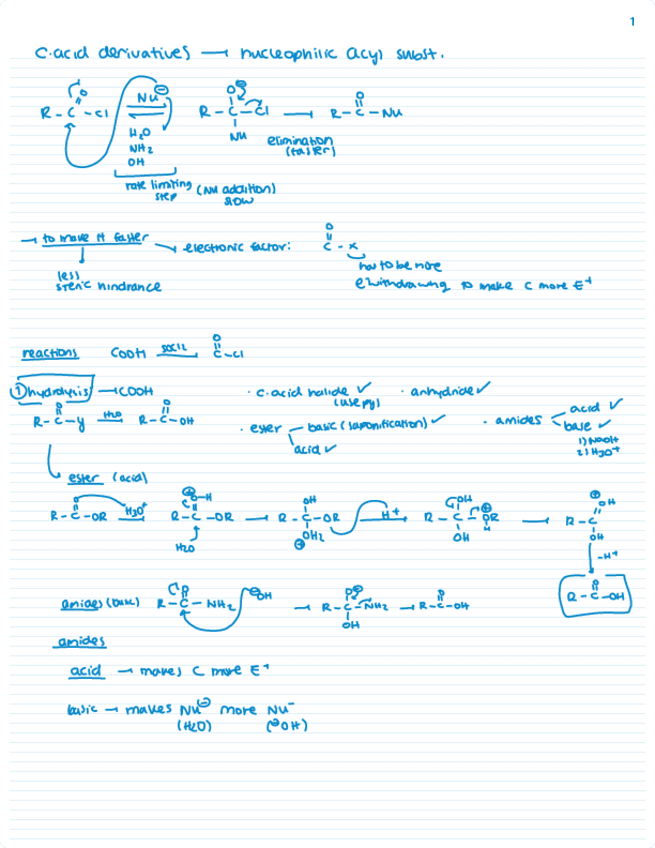 1
C.acid derivatives → nucleophilic acyl subst.
R-C-Cl Nu⊖ R-C-Cl → R-C-Nu
O O⊖ O
H2O Nu elimination
NH2 (faster)
OH
rate limiting (Nu addition)
step slow
→ to make it faster → electronic factor: C-x
O
less has to be more
steric hindrance e⁻withdrawing to make C more E⁺
reactions COOH SOCl2 → C-Cl
O
① hydrolysis → COOH · c.acid halide ✓ · anhydride ✓
(use py)
R-C-y H2O → R-C-OH · ester basic (saponification) ✓ · amides acid ✓
O O acid ✓ base ✓
1) NaOH
2) H3O⁺
ester (acid)
O ⊕O-H OH OH ⊕OH
R-C-OR H3O⁺ → R-C-OR → R-C-OR H⁺ → R-C-OR → R-C
H2O ⊕OH2 OH H OH
-H⁺
O
R-C-OH
amides (basic) R-C-NH2 ⊖OH → R-C-NH2 → R-C-OH
O O⊖ O
OH
amides
acid → makes C more E⁺
basic → makes Nu⊖ more Nu⁻
(H2O) (⊖OH)